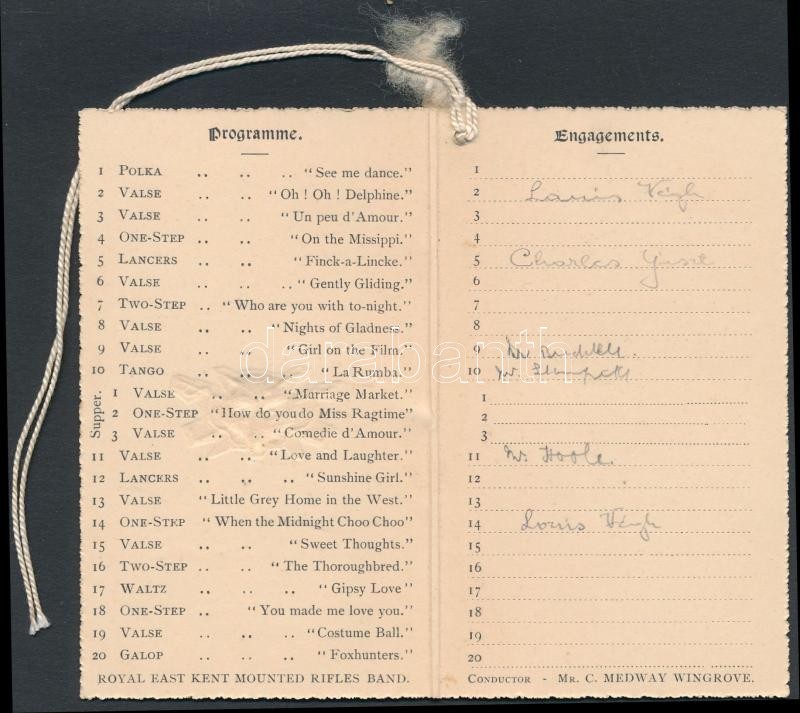 Programme.
1 POLKA .. .. .. "See me dance."
2 VALSE .. .. "Oh! Oh! Delphine."
3 VALSE .. .. "Un peu d'Amour."
4 ONE-STEP .. .. "On the Missippi."
5 LANCERS .. .. "Finck-a-Lincke."
6 VALSE .. .. .. "Gently Gliding."
7 TWO-STEP .. "Who are you with to-night."
8 VALSE .. .. "Nights of Gladness."
9 VALSE .. .. "Girl on the Film."
10 TANGO .. .. .. "La Rumba."
Supper.
1 VALSE .. .. "Marriage Market."
2 ONE-STEP "How do you do Miss Ragtime"
3 VALSE .. .. "Comedie d'Amour."
11 VALSE .. .. "Love and Laughter."
12 LANCERS .. .. "Sunshine Girl."
13 VALSE "Little Grey Home in the West."
14 ONE-STEP "When the Midnight Choo Choo"
15 VALSE .. .. "Sweet Thoughts."
16 TWO-STEP .. .. "The Thoroughbred."
17 WALTZ .. .. .. "Gipsy Love"
18 ONE-STEP .. "You made me love you."
19 VALSE .. .. .. "Costume Ball."
20 GALOP .. .. .. "Foxhunters."
ROYAL EAST KENT MOUNTED RIFLES BAND.
Engagements.
1
2 Louis Veigh
3
4
5 Charles
6
7
8
9 Mr
10 Mr
1
2
3
11 Mr Hoole.
12
13
14 Louis Veigh
15
16
17
18
19
20
CONDUCTOR - MR. C. MEDWAY WINGROVE.
darabanth